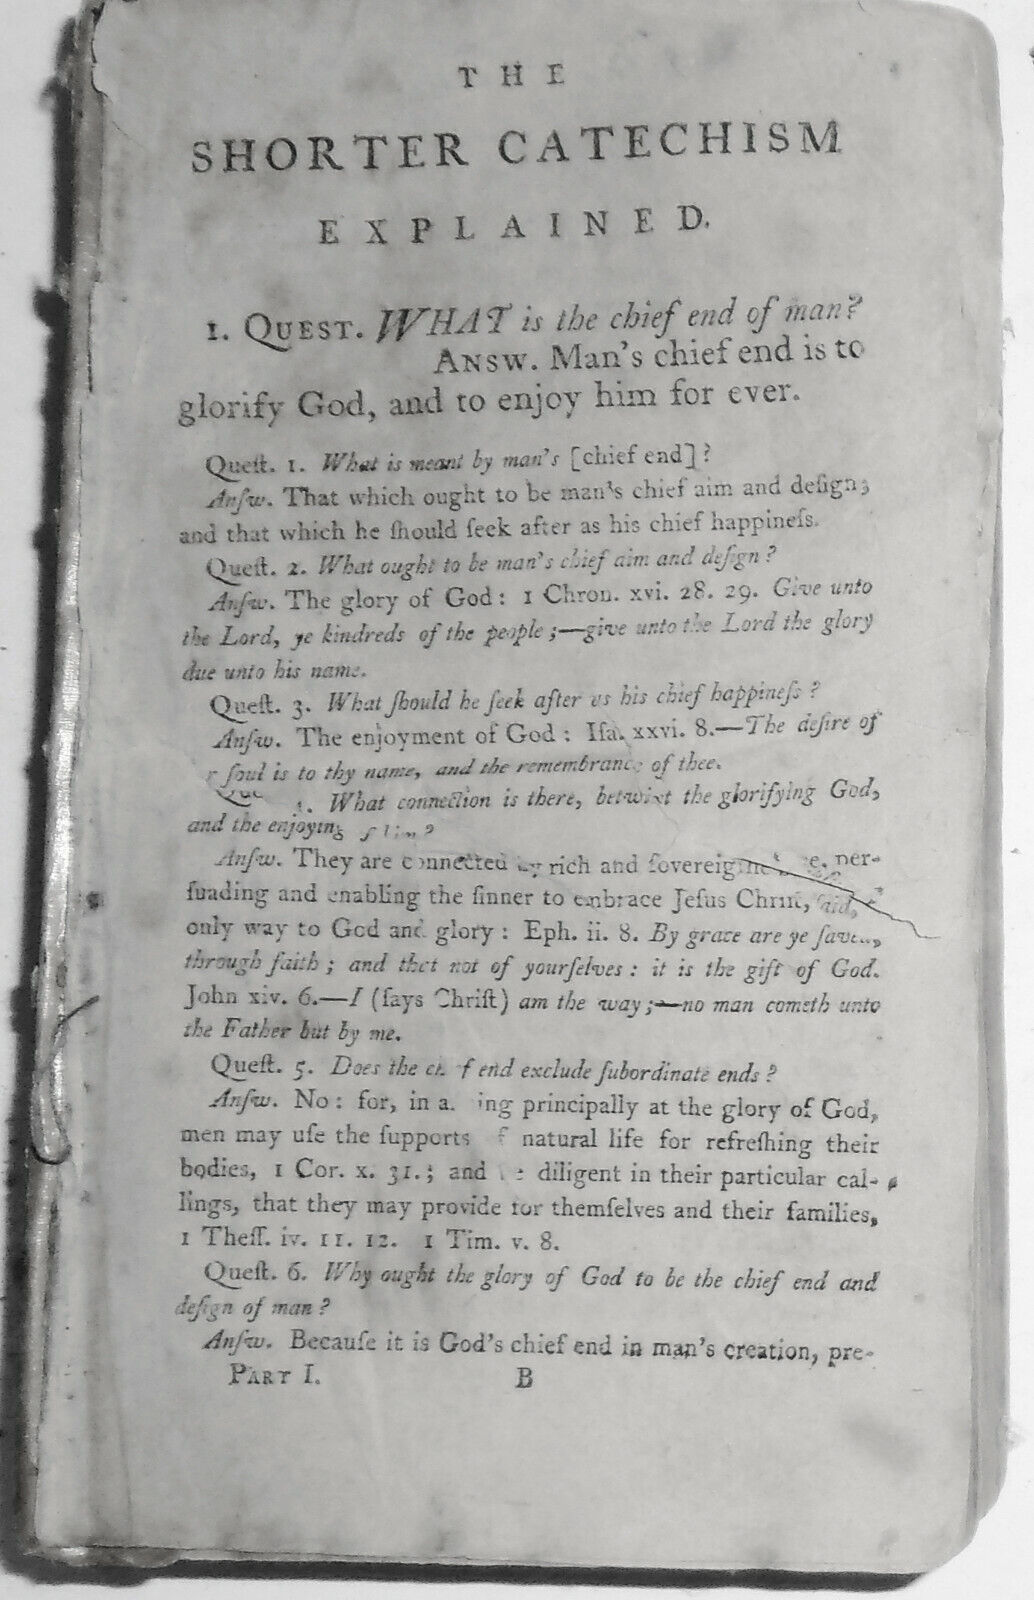 THE
SHORTER CATECHISM
EXPLAINED.
1. QUEST. WHAT is the chief end of man?
ANSW. Man's chief end is to
glorify God, and to enjoy him for ever.
Queſt. 1. What is meant by man's [chief end]?
Anſw. That which ought to be man's chief aim and deſign;
and that which he ſhould ſeek after as his chief happineſs.
Queſt. 2. What ought to be man's chief aim and deſign?
Anſw. The glory of God: 1 Chron. xvi. 28. 29. Give unto
the Lord, ye kindreds of the people;—give unto the Lord the glory
due unto his name.
Queſt. 3. What ſhould he ſeek after as his chief happineſs?
Anſw. The enjoyment of God: Iſa. xxvi. 8.—The deſire of
ſoul is to thy name, and the remembrance of thee.
What connection is there, betwixt the glorifying God,
and the enjoying
Anſw. They are connected by rich and ſovereign per-
ſuading and enabling the ſinner to embrace Jeſus Chriſt,
only way to God and glory: Eph. ii. 8. By grace are ye ſaved,
through faith; and that not of yourſelves: it is the gift of God.
John xiv. 6.—I (ſays Chriſt) am the way;—no man cometh unto
the Father but by me.
Queſt. 5. Does the chief end exclude ſubordinate ends?
Anſw. No: for, in principally at the glory of God,
men may uſe the ſupports of natural life for refreſhing their
bodies, 1 Cor. x. 31.; and be diligent in their particular cal-
lings, that they may provide for themſelves and their families,
1 Theſſ. iv. 11. 12. 1 Tim. v. 8.
Queſt. 6. Why ought the glory of God to be the chief end and
deſign of man?
Anſw. Becauſe it is God's chief end in man's creation, pre-
PART I. B